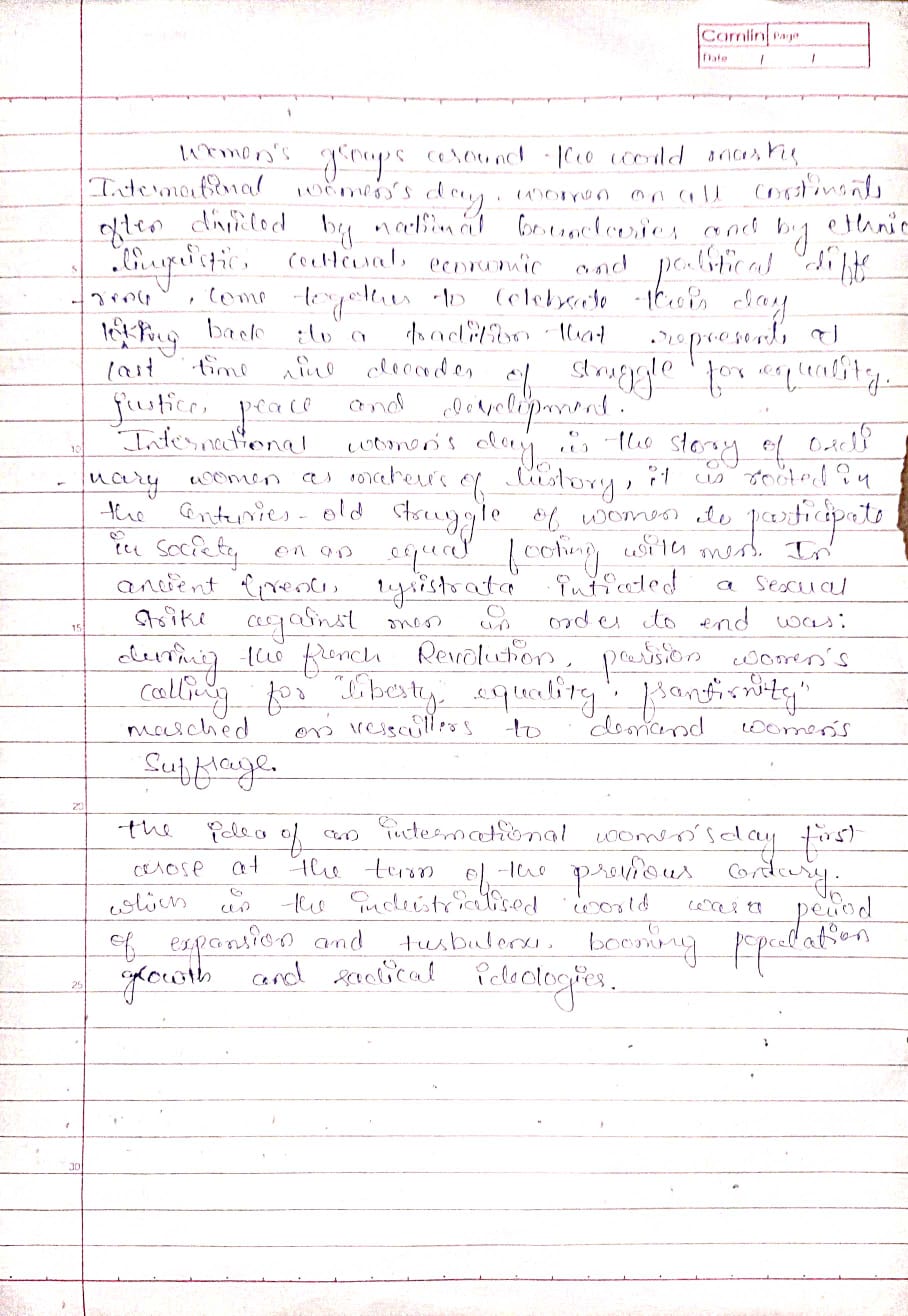 Camlin Page
Date / /
Women's groups around the world marks
International women's day. women on all continents
often divided by national boundaries and by ethnic
5 linguistic, cultural, economic and political diff
- rence, come together to celebrate their day
looking back to a tradition that represents at
last time nine decades of struggle for equality.
justice, peace and development.
10 International women's day is the story of ordi
- nary women as maters of history, it is rooted in
the centuries-old struggle of women to participate
in society on an equal footing with men. In
ancient Greence, lysistrata intiated a sexual
15 strike against men in order to end was:
during the french Revolution, parision women's
calling for "liberty, equality,
marched on versaillers to demand women's
Suffrage.
20
the idea of an international women's day first
arose at the turn of the previous
which in the industrialised world was a period
of expansion and turbulence. booming population
25 growth and radical ideologies.
30